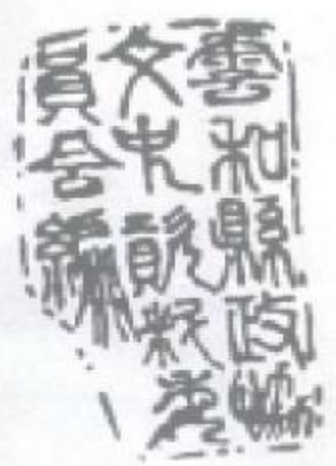 雲和縣政協
文史資料委
員會編